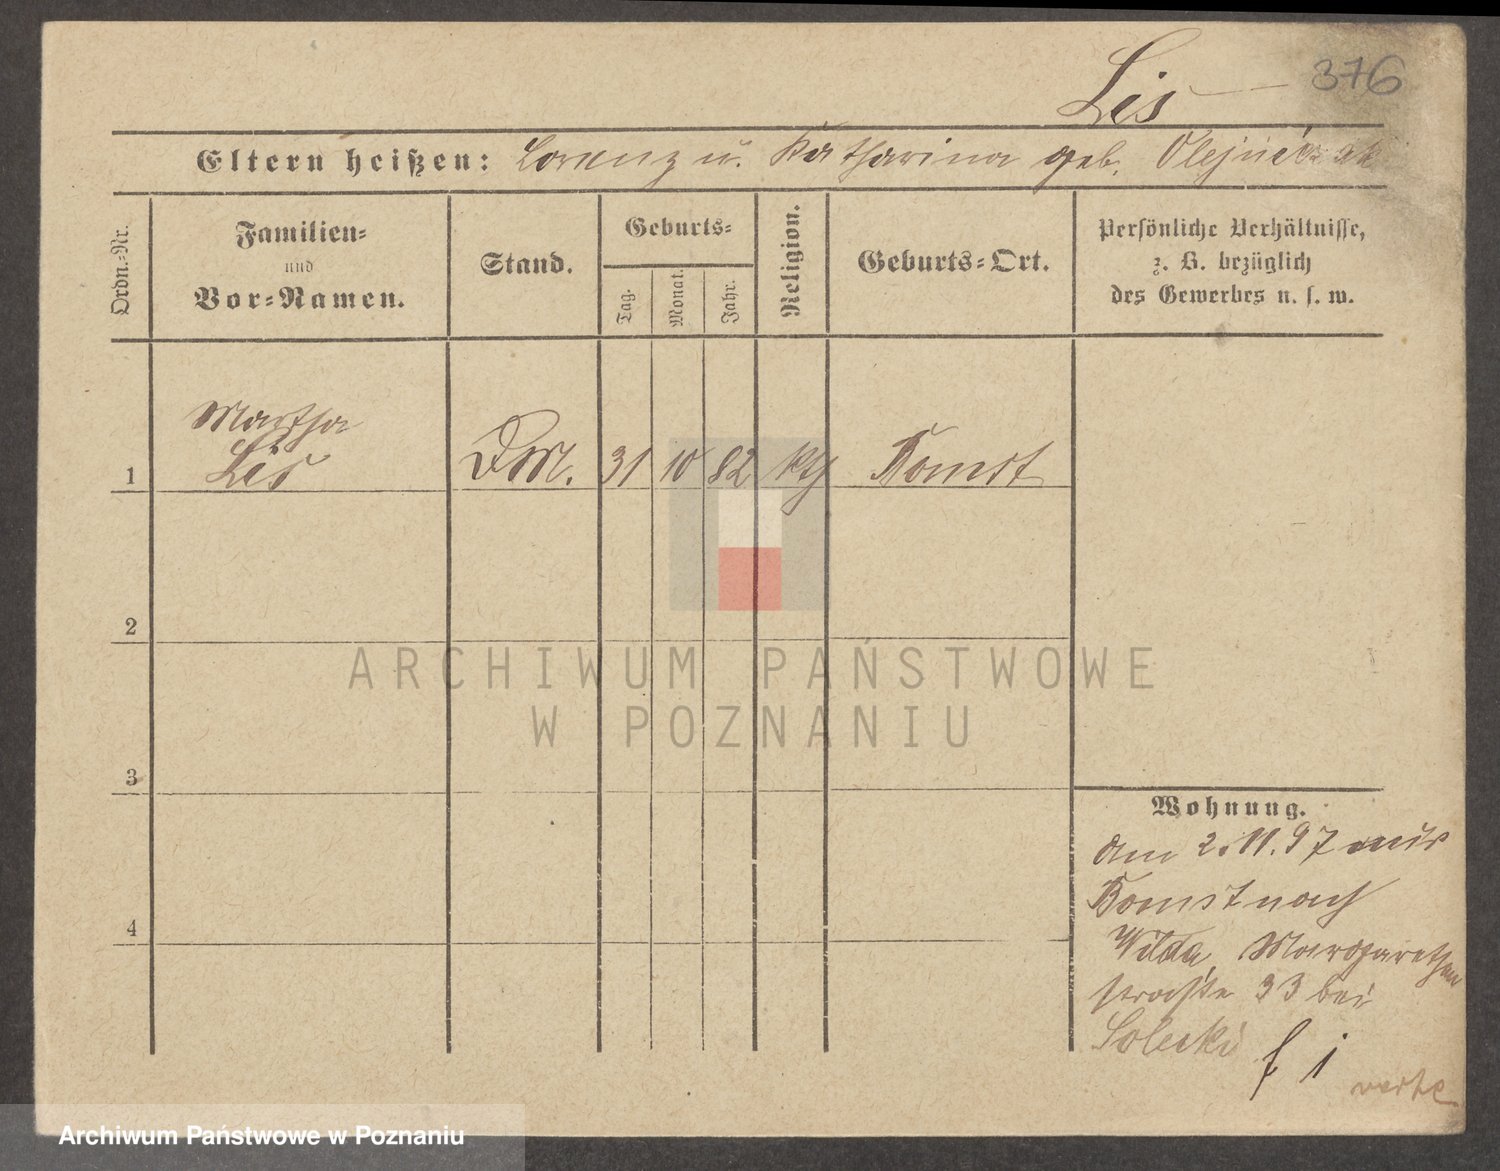 Lis
376
Eltern heißen: Lorenz u. Katharina geb. Olejniczak
Ordn.-Nr.
Familien-
und
Vor-Namen.
Stand.
Geburts-
Tag.
Monat.
Jahr.
Religion.
Geburts-Ort.
Persönliche Verhältnisse,
z. B. bezüglich
des Gewerbes u. s. w.
Martha
1 Lis DM. 31 10 82 kth Bomst
2
3
4
Wohnung.
Am 2.11.97 aus
Bomst nach
Wilda, Margarethen
straße 33 bei
Solecki
verte
ARCHIWUM PAŃSTWOWE
W POZNANIU
Archiwum Państwowe w Poznaniu